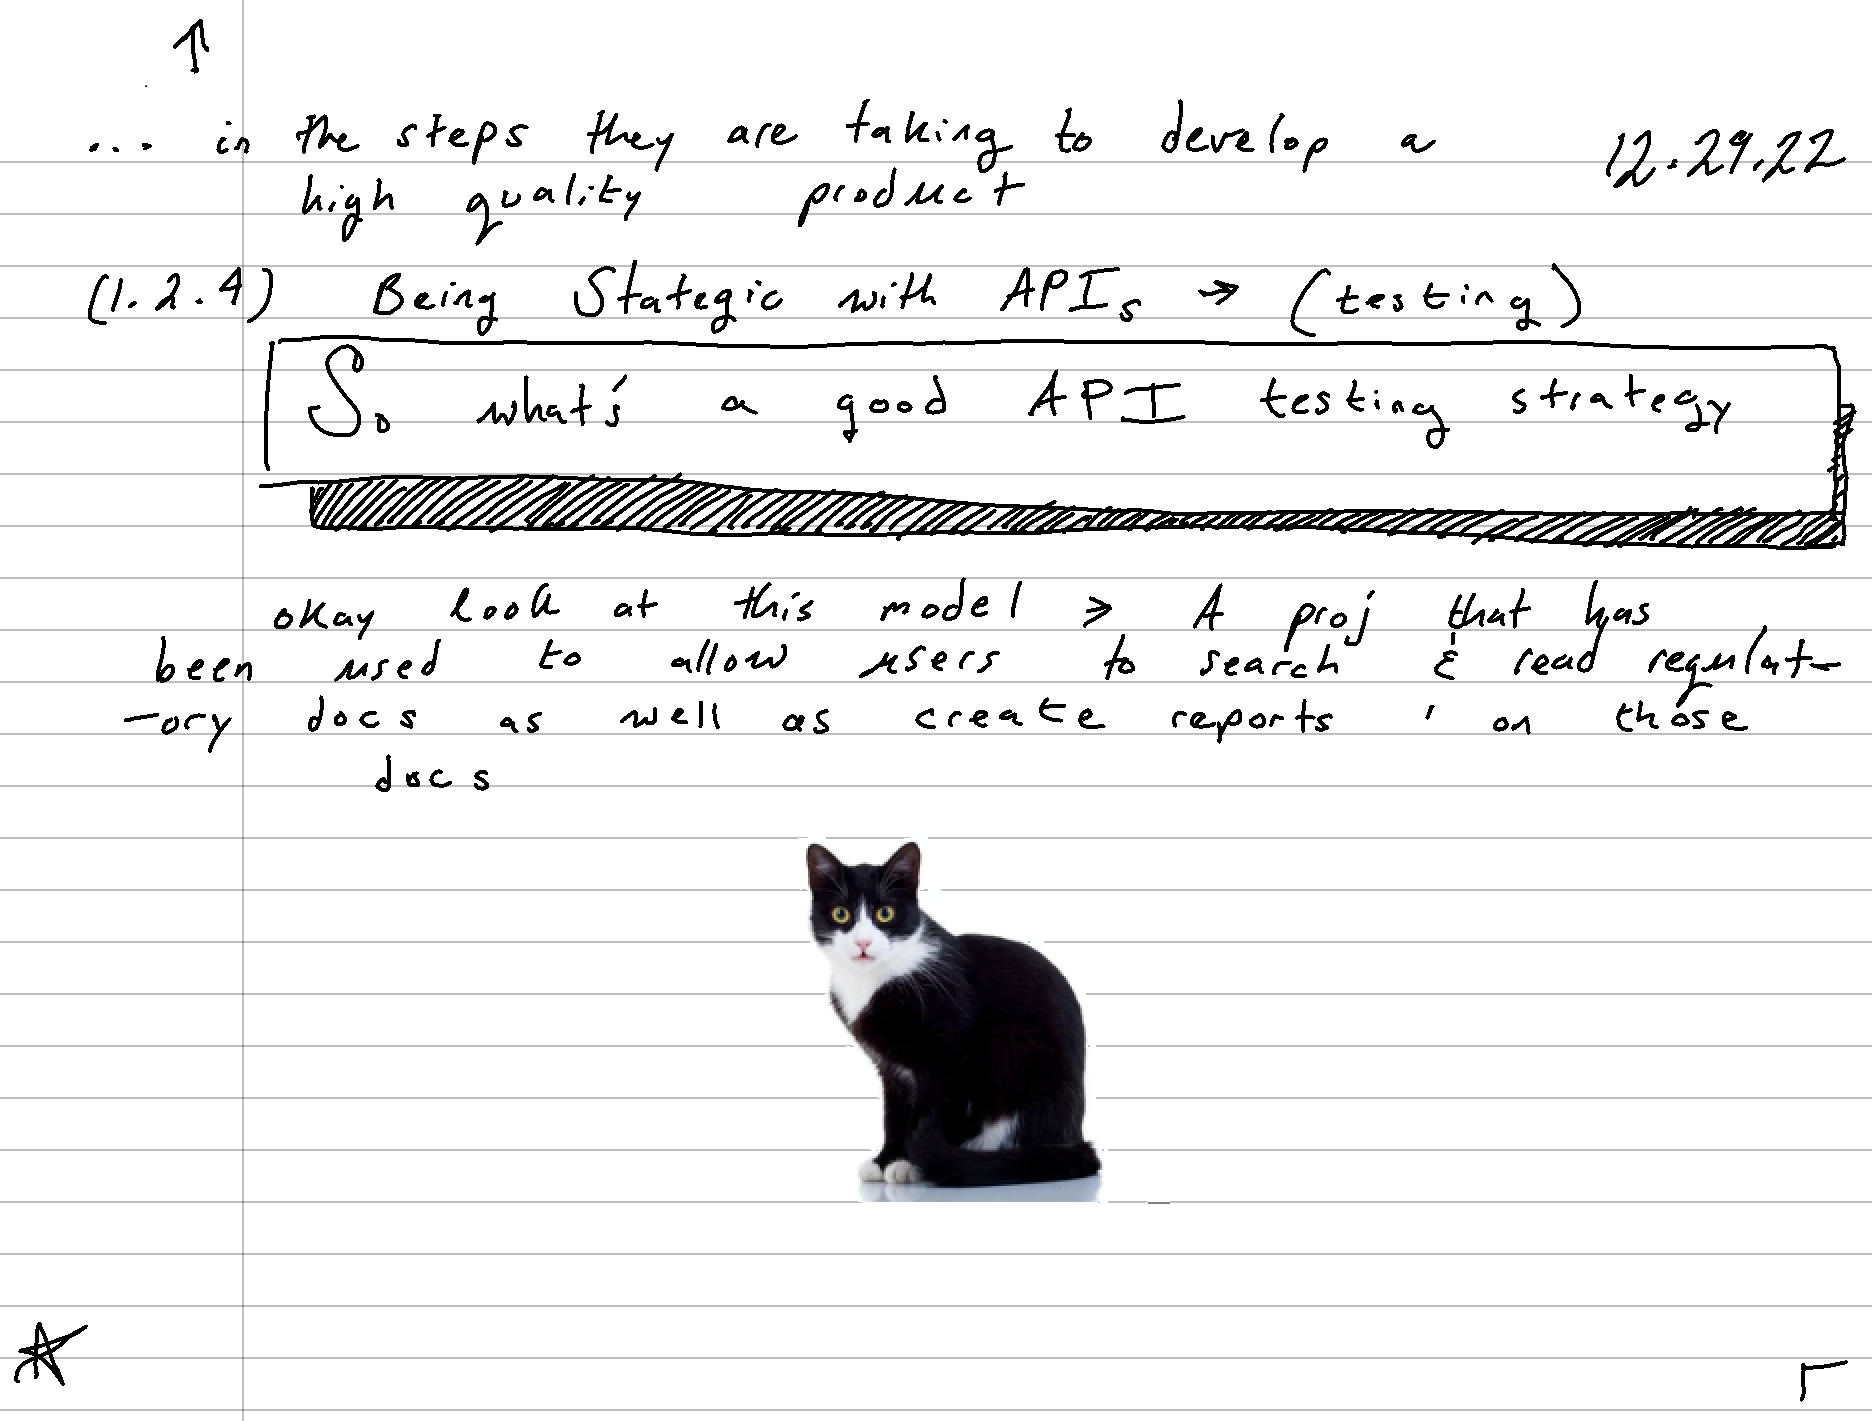 ... in the steps they are taking to develop a 12.29.22
high quality product
(1.2.4) Being Stategic with APIs → (testing)
So what's a good API testing strategy
okay look at this model > A proj that has
been used to allow users to search & read regulat-
-ory docs as well as create reports ' on those
docs